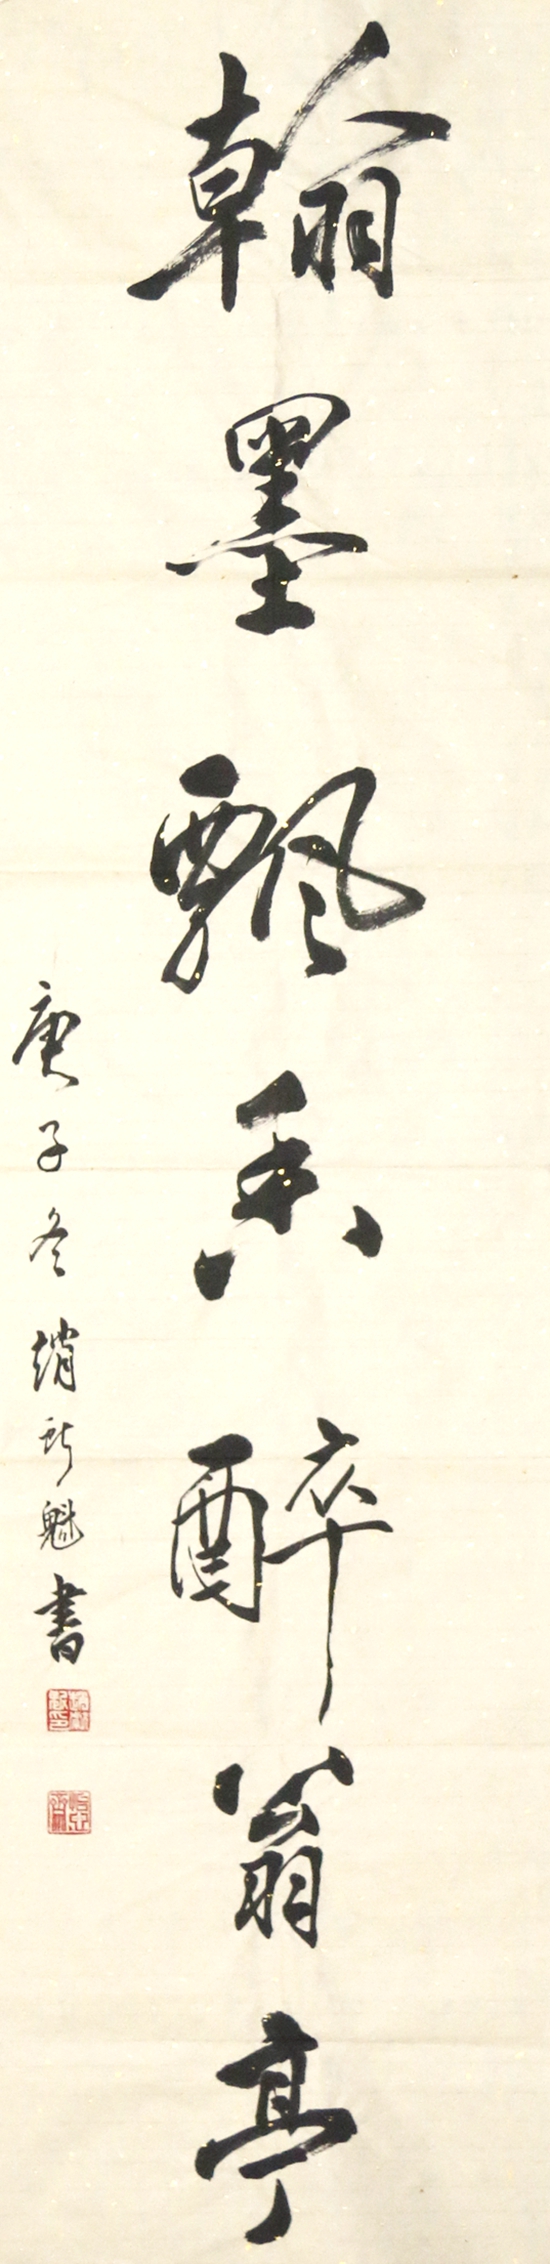 翰墨飘香醉翁亭
庚子冬 趙新魁書